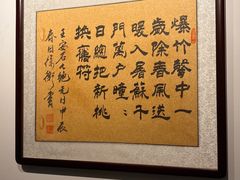 爆竹聲中一
歲除春風送
暖入屠蘇千
門萬戶曈〻
日總把新桃
換舊符
王安石七絕元日甲辰
春日